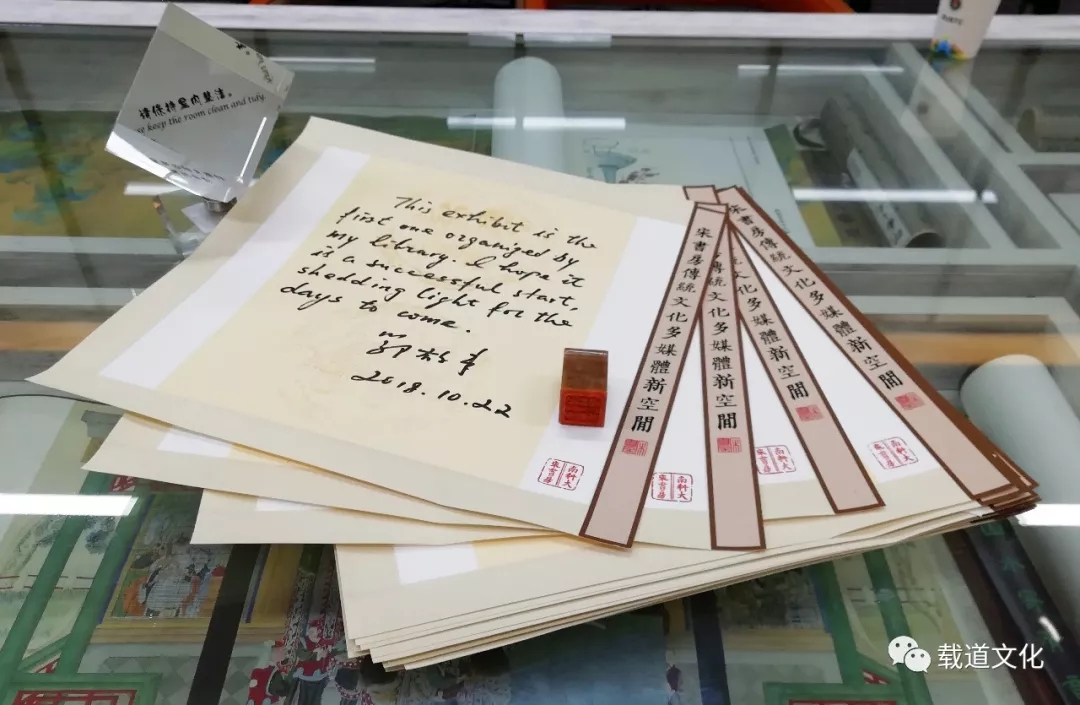 请保持室内整洁。
se keep the room clean and tidy.
This exhibit is the
first one organized by
my library. I hope it
is a successful start,
shedding light for the
days to come.
2018.10.22
朱書房傳統文化多媒體新空間
傳統文化多媒體新空間
文化多媒體新空間
朱書房傳統文化多媒體新空間
南科大
朱書房
南科大
朱書房
南科大
朱書房
载道文化